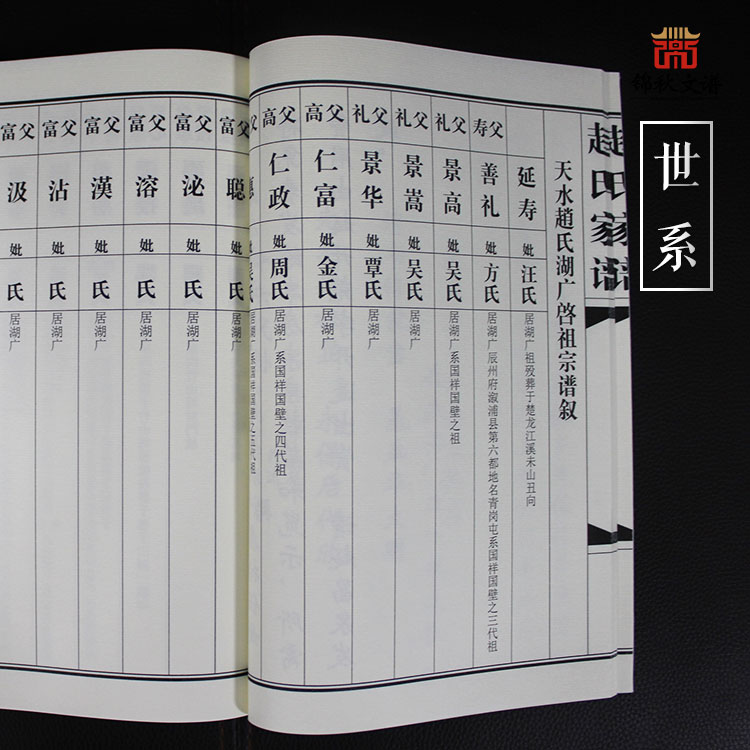 锦秋文谱
世系
趙氏家谱
天水趙氏湖广啓祖宗谱叙
延寿
妣
汪氏
居湖广祖殁葬于楚龙江溪未山丑向
父寿
善礼
妣
方氏
居湖广辰州府溆浦县第六都地名青岗屯系国祥国壁之三代祖
父礼
景高
妣
吴氏
居湖广系国祥国壁之祖
父礼
景嵩
妣
吴氏
居湖广
父礼
景华
妣
覃氏
居湖广
父高
仁富
妣
金氏
居湖广
父高
仁政
妣
周氏
居湖广系国祥国壁之四代祖
父
妣
吴氏
居湖广系国祥国壁之五代祖
父富
聪
妣
氏
居湖广
父富
泌
妣
氏
居湖广
父富
溶
妣
氏
居湖广
父富
漢
妣
氏
居湖广
父富
沾
妣
氏
居湖广
父富
汲
妣
氏
居湖广